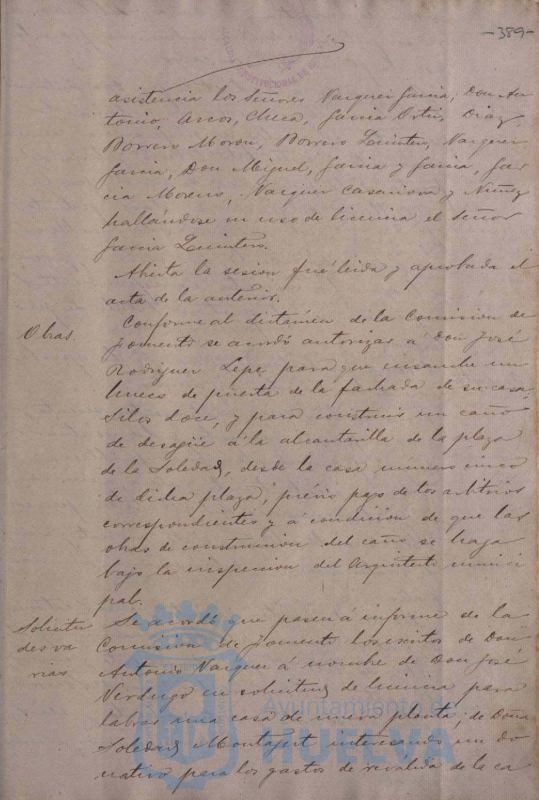 -389-
asistencia los Señores Vazquez Garcia, Don An-
tonio, Arcos, Checa, Garcia Ortiz, Diaz,
Borrero Moron, Borrero Quintero, Vazquez
Garcia, Don Miguel, Garcia y Garcia, Gar-
cia Moreno, Vazquez Casanova y Nuñez
hallándose en uso de licencia el Señor
Garcia Quintero.
Abierta la sesion fué leida y aprobada el
acta de la anterior.
Obras.
Conforme al dictámen de la Comision de
Fomento se acordó autorizar á Don José
Rodriguez Lepe para que ensanche un
hueco de puerta de la fachada de su casa,
Silos doce, y para construir un caño
de desagüe á la alcantarilla de la plaza
de la Soledad, desde la casa numero cinco
de dicha plaza, prévio pago de los arbitrios
correspondientes y á condicion de que las
obras de construccion del caño se haga
bajo la inspeccion del Arquitecto munici
pal.
Solicitu
des va
rias
Se acordó que pasen á informe de la
Comision de Fomento los escritos de Don
Antonio Vazquez á nombre de Don José
Verdugo en solicitud de licencia para
labrar una casa de nueva planta, de Doña
Soledad interesando un do
nativo para los gastos de reválida de la ca
Ayuntamiento de
HUELVA